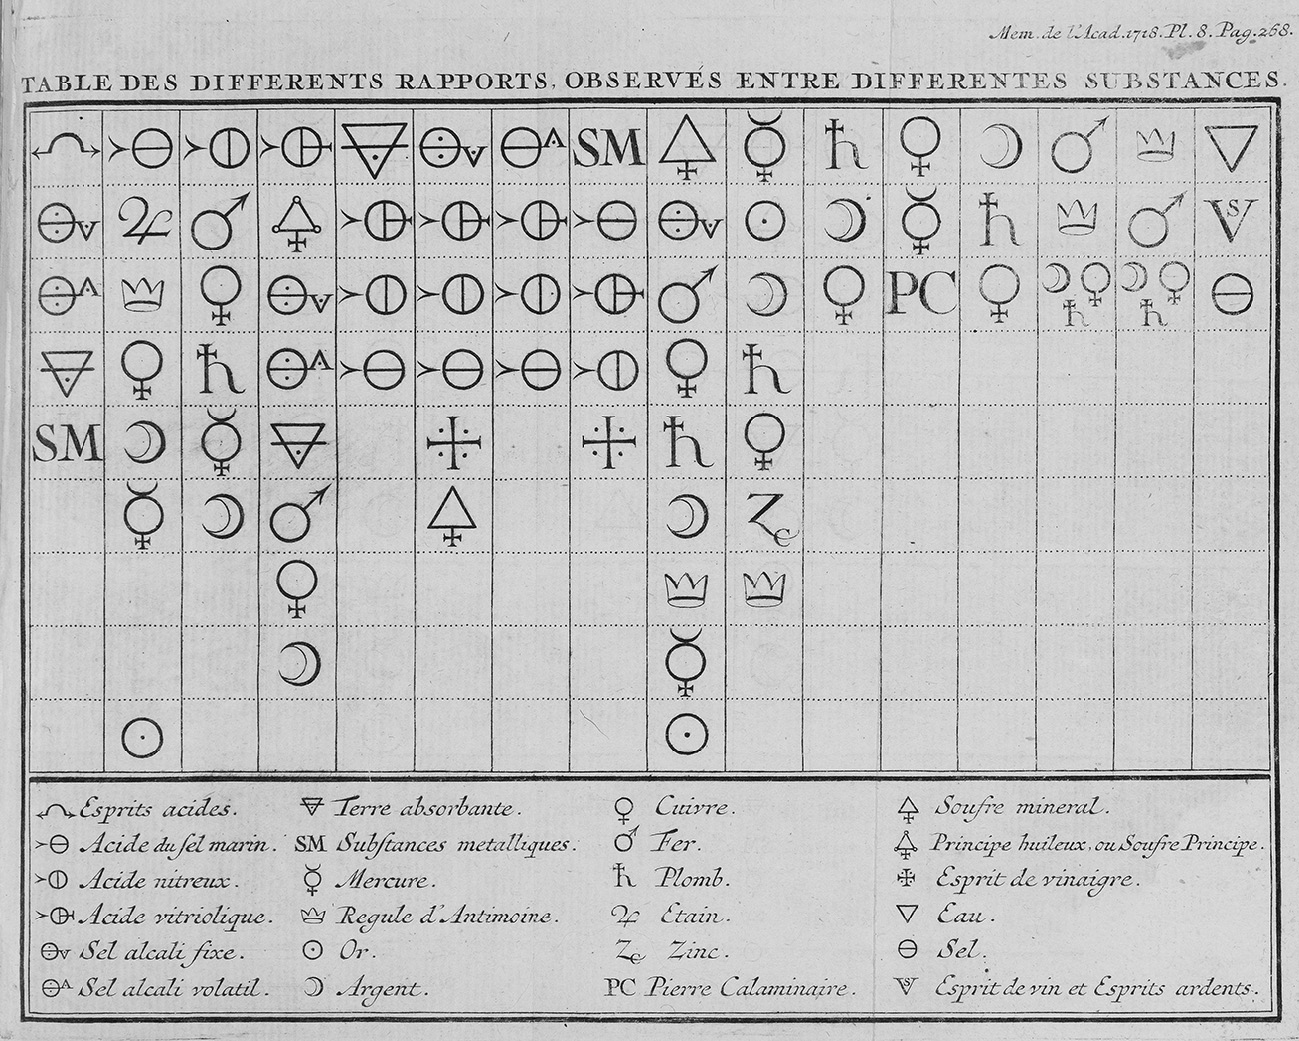 Mem. de l'Acad. 1718. Pl. 8. Pag. 268.
TABLE DES DIFFERENTS RAPPORTS, OBSERVÉS ENTRE DIFFERENTES SUBSTANCES.
SM
PC
SM
Esprits acides. Terre absorbante. Cuivre. Soufre mineral.
Acide du sel marin. SM Substances metalliques. Fer. Principe huileux, ou Soufre Principe.
Acide nitreux. Mercure. Plomb. Esprit de vinaigre.
Acide vitriolique. Regule d'Antimoine. Etain. Eau.
Sel alcali fixe. Or. Zinc. Sel.
Sel alcali volatil. Argent. PC Pierre Calaminaire. Esprit de vin et Esprits ardents.